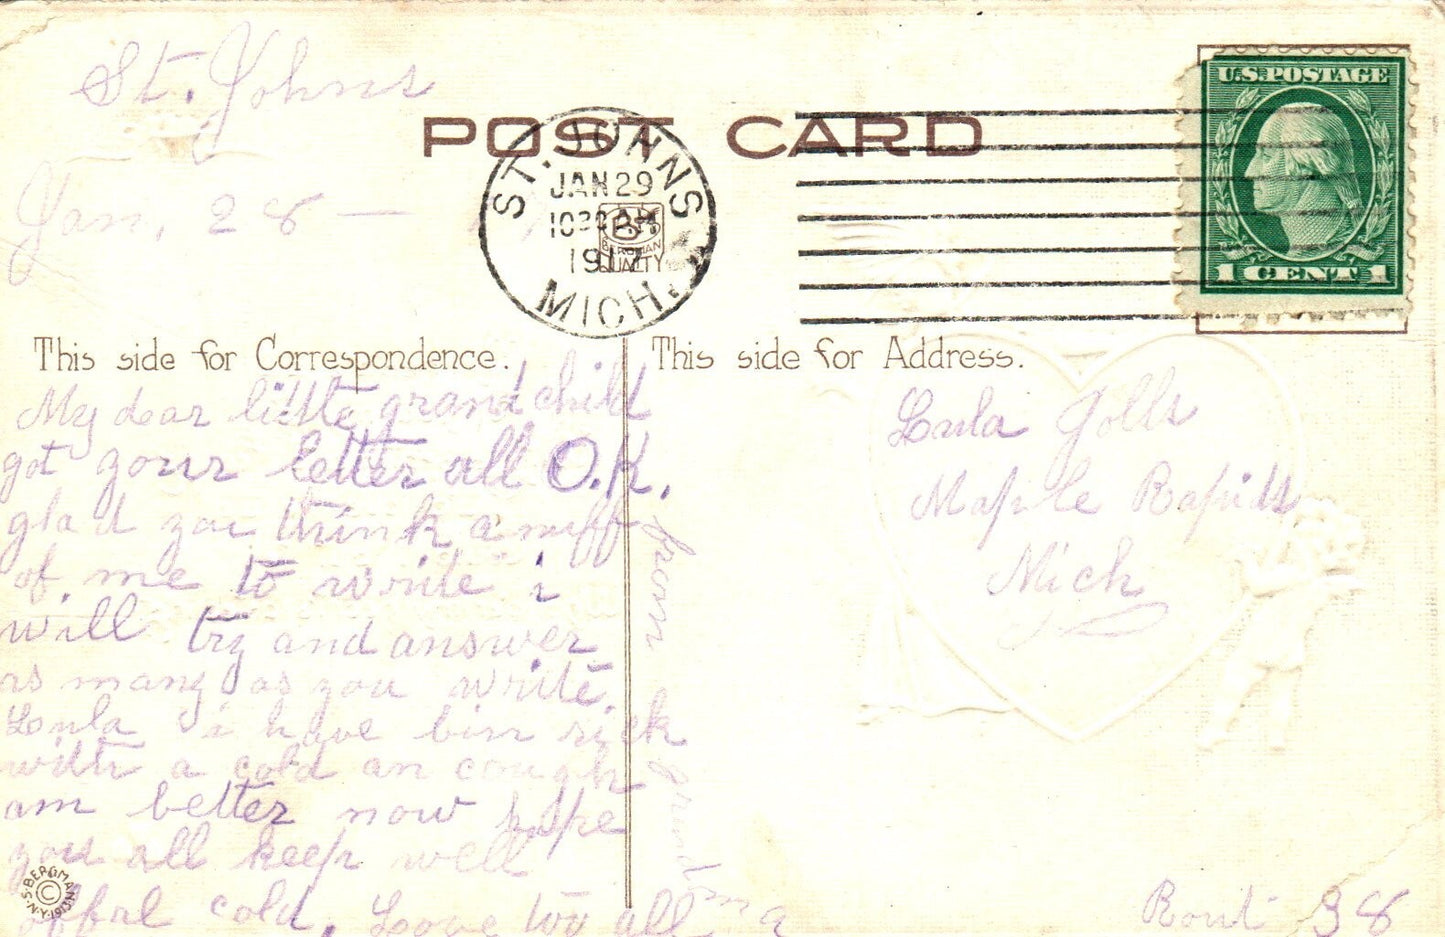 St. Johns
Jan, 28 —
POST CARD
ST. JOHNS
JAN 29
1030
1917
MICH.
BERGMAN
QUALITY
U.S. POSTAGE
1 CENT 1
This side for Correspondence.
My dear little grand child
got your letter all O.K.
glad you think enuff
of me to write i
will try and answer
as many as you write.
Lula i have bin sick
with a cold an cough
am better now hope
you all keep well
offal cold. Love too all
from grandma
This side for Address.
Lula
Maple Rapids
Mich
Rout 38
S. BERGMAN N.Y. 1913 ©